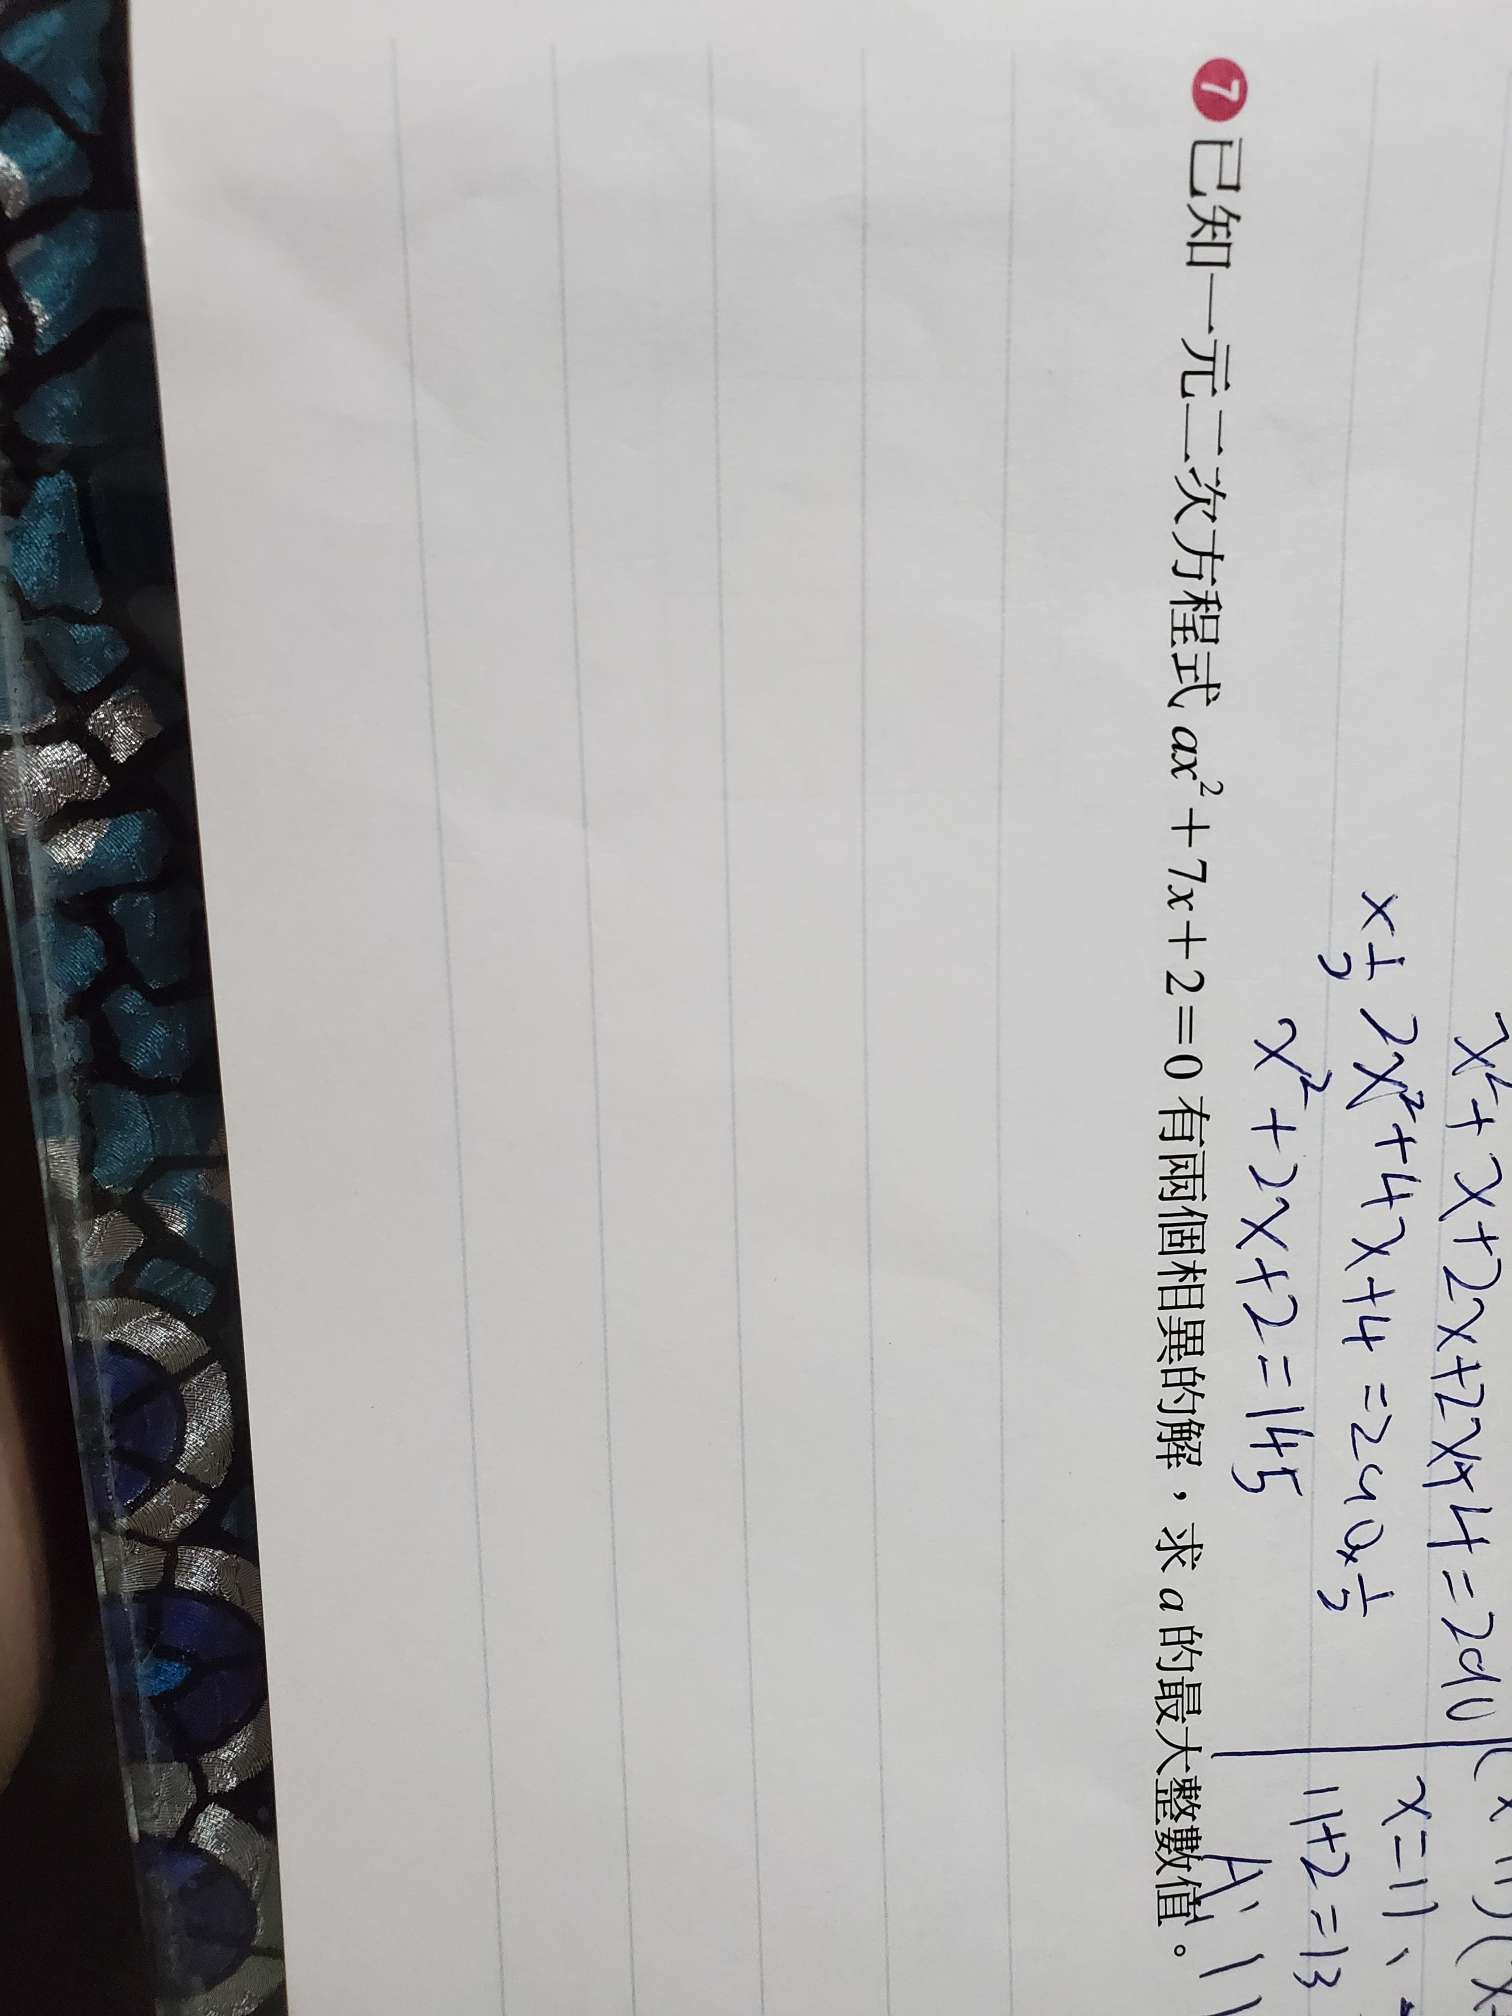 x²+x+2x+2x+4=
x½ 2x²+4x+4=240x½
x=11、
x²+2x+2=145
11+2=13
A:11
7 已知一元二次方程式 ax²+7x+2=0 有兩個相異的解，求 a 的最大整數值。